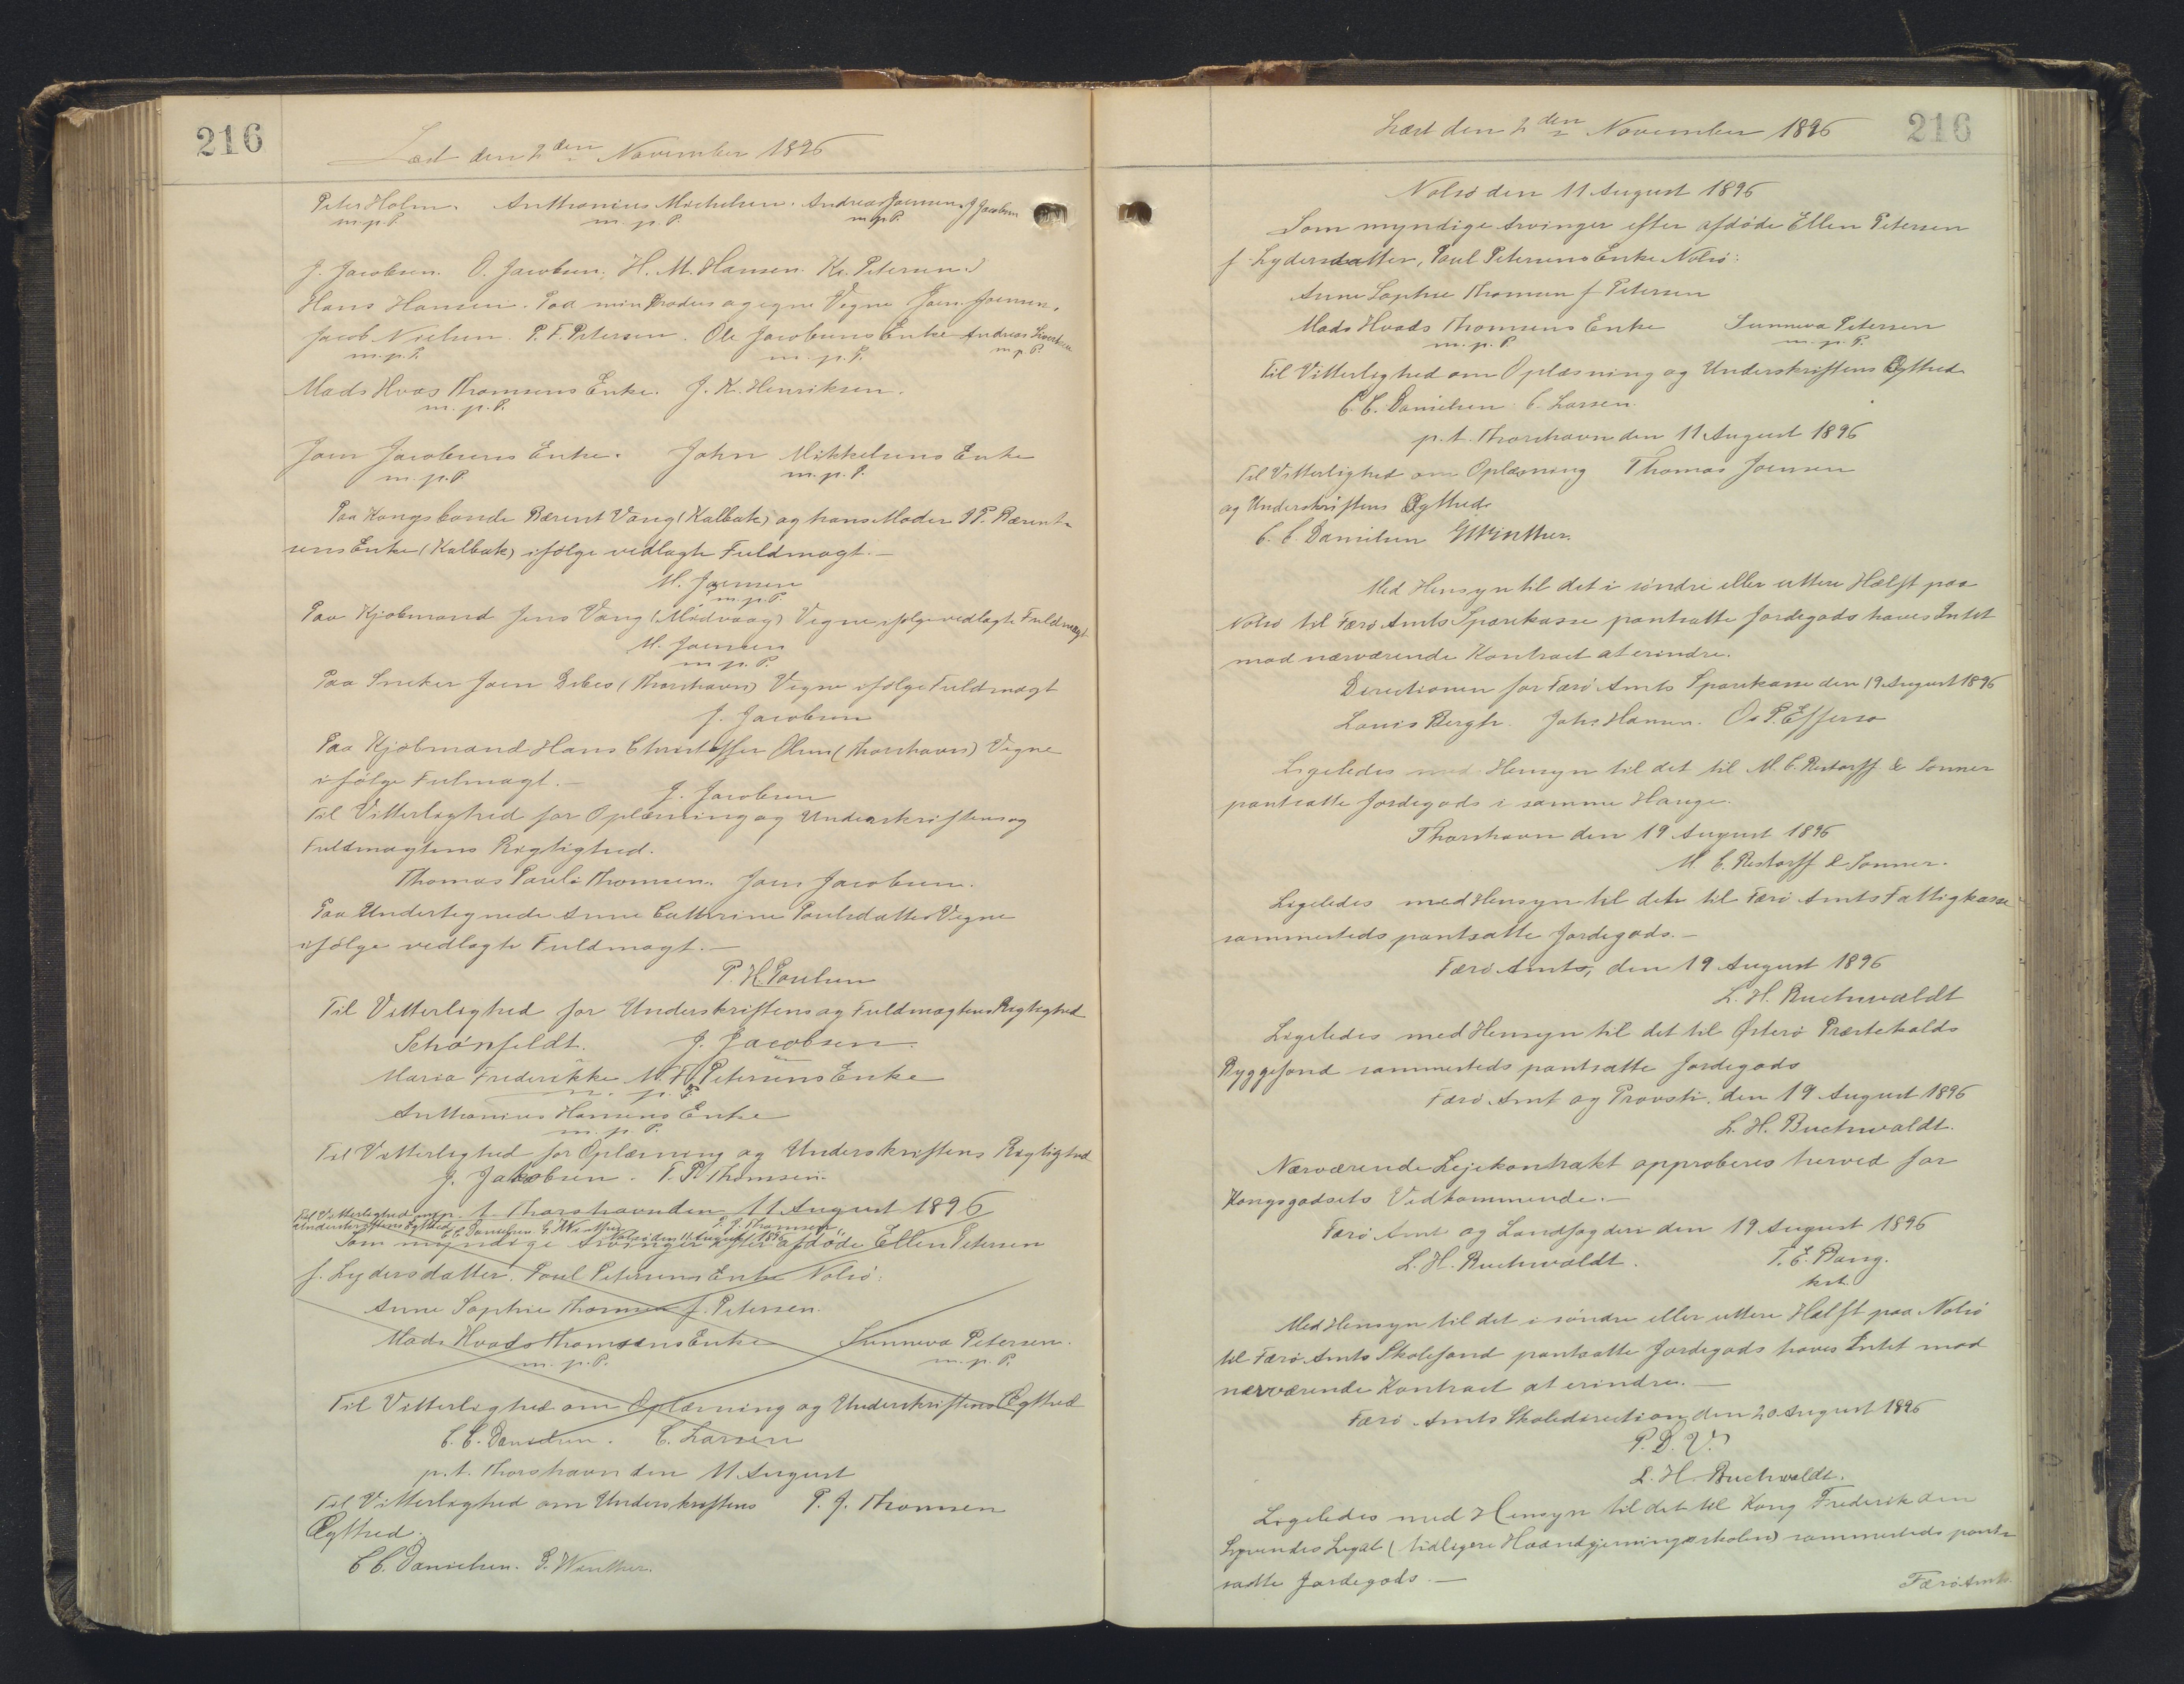 216
Læst den 2den November 1896
Peter Holm. Anthonius Michelsen. Andreas Joensen. J Jacobsen
m. p. P. m. p. P. m. p. P.
J. Jacobsen. O. Jacobsen. H. M. Hansen. Kr. Petersen.
Hans Hansen. Paa min Broders og egne Vegne Joen Joensen.
Jacob Nielsen. P. F. Petersen. Ole Jacobsens Enke Andreas
m. p. P. m. p. P. m. p. P.
Mads Hvas Thomsens Enke. J. K. Henriksen.
m. p. P.
Joen Jacobsens Enke. John Mikkelsens Enke
m. p. P. m. p. P.
Paa Kongsbonde Bærent Vang (Kalbak) og hans Moder J P. Bærent-
sens Enke (Kalbak) ifölge vedlagte Fuldmagt.—
M. Joensen
m. p. P.
Paa Kjöbmand Jens Vang (Midvaag) Vegne ifölge vedlagte Fuldmagt
M. Joensen
m. p. P.
Paa Sneker Joen Debes (Thorshavn) Vegne ifölge Fuldmagt
J. Jacobsen
Paa Kjöbmand Hans Christoffer Olsen (Thorshavn) Vegne
ifölge Fulmagt.—
J. Jacobsen
Til Vitterlighed for Oplæsning og Underskriftens og
Fuldmagtens Rigtighed.
Thomas Pauli Thomsen. Joen Jacobsen.
Paa Undertegnede Anne Cathrine Poulsdatters Vegne
ifölge vedlagte Fuldmagt.—
P. H. Poulsen
Til Vitterlighed for Underskriftens og Fuldmagtens Rigtighed
Schönfeldt. J. Jacobsen.
Maria Frederikke M. F. Petersens Enke
m. p. P.
Anthonius Hansens Enke
m. p. P.
Til Vitterlighed for Oplæsning og Underskriftens Rigtighed
J. Jakobsen. T. P. Thomsen.
Til Vitterlighed om p. t. Thorshavn den 11 August 1896
Underskriftens Ægthed C. C. Danielsen G. Winther P. J. Thomsen
Nolsö den 11 August 1896
Som myndige Arvinger efter afdöde Ellen Petersen
f. Lydersdatter, Poul Petersens Enke Nolsö:
Anne Sophie Thomsen f. Petersen.
Mads Hvads Thomsens Enke Sunneva Petersen.
m. p. P. m. p. P.
Til Vitterlighed om Oplæsning og Underskriftens Ægthed
C. C. Danielsen. C. Larsen
p. t. Thorshavn den 11 August
Til Vitterlighed om Underskriftens P. J. Thomsen
Ægthed.
C C. Danielsen. G. Winther.
Læst den 2den November 1896
216
Nolsö den 11 August 1896
Som myndige Arvinger efter afdöde Ellen Petersen
f. Lydersdatter, Poul Petersens Enke Nolsö:
Anne Sophie Thomsen f Petersen
Mads Hvads Thomsens Enke Sunneva Petersen
m. p. P. m. p. P.
Til Vitterlighed om Oplæsning og Underskriftens Ægthed
C. C. Danielsen C. Larsen.
p. t. Thorshavn den 11 August 1896
Til Vitterlighed om Oplæsning Thomas Joensen
og Underskriftens Ægthed.
C. C. Danielsen GWinther.
Med Hensyn til det i söndre eller uttere Hælft paa
Nolsö til Færö Amts Sparekasse pantsatte Jordegods haves Intet
mod nærværende Kontract at erindre.
Directionen for Færö Amts Sparekasse den 19 August 1896
Louis Bergh. Johs Hansen. O. P. Effersö
Ligeledes med Hensyn til det til M. C. Restorff & Sönner
pantsatte Jordegods i samme Hauge.
Thorshavn den 19 August 1896
M. C. Restorff & Sönner.
Ligeledes med Hensyn til det til Færö Amts Fattigkasse
sammesteds pantsatte Jordegods.—
Færö Amt, den 19 August 1896
L. H. Buchwaldt
Ligeledes med Hensyn til det til Österö Præstekalds
Byggefond sammesteds pantsatte Jordegods
Færö Amt og Provsti, den 19 August 1896
L. H. Buchwaldt.
Nærværende Lejekontrakt approberes herved for
Kongsgodsets Vedkommende.—
Færö Amt og Landfogderi den 19 August 1896
L. H. Buchwaldt. T. E. Bang.
kst.
Med Hensyn til det i söndre eller uttere Hælft paa Nolsö
til Færö Amts Skolefond pantsatte Jordegods haves Intet mod
nærværende Kontract at erindre.—
Færö Amts Skoledirection, den 20 August 1896
P. D. V.
L. H. Buchwaldt.
Ligeledes med Hensyn til det til Kong Frederik den
Syvendes Legat (tidligere Haandgjerningsskolen) sammesteds pant-
satte Jordegods.—
Færö Amts